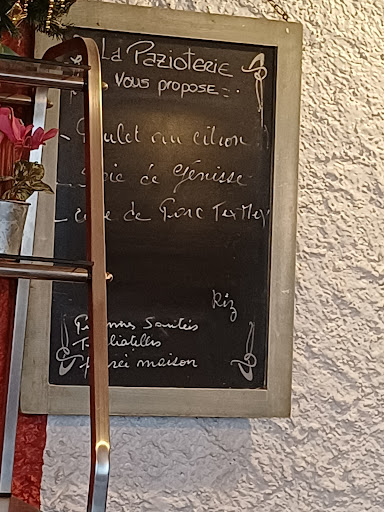 La Pazioterie
Vous propose :
- Poulet au citron
de Génisse
- de Porc Tex Mex
Riz
Pommes Sautées
Tagliatelles
Purée maison